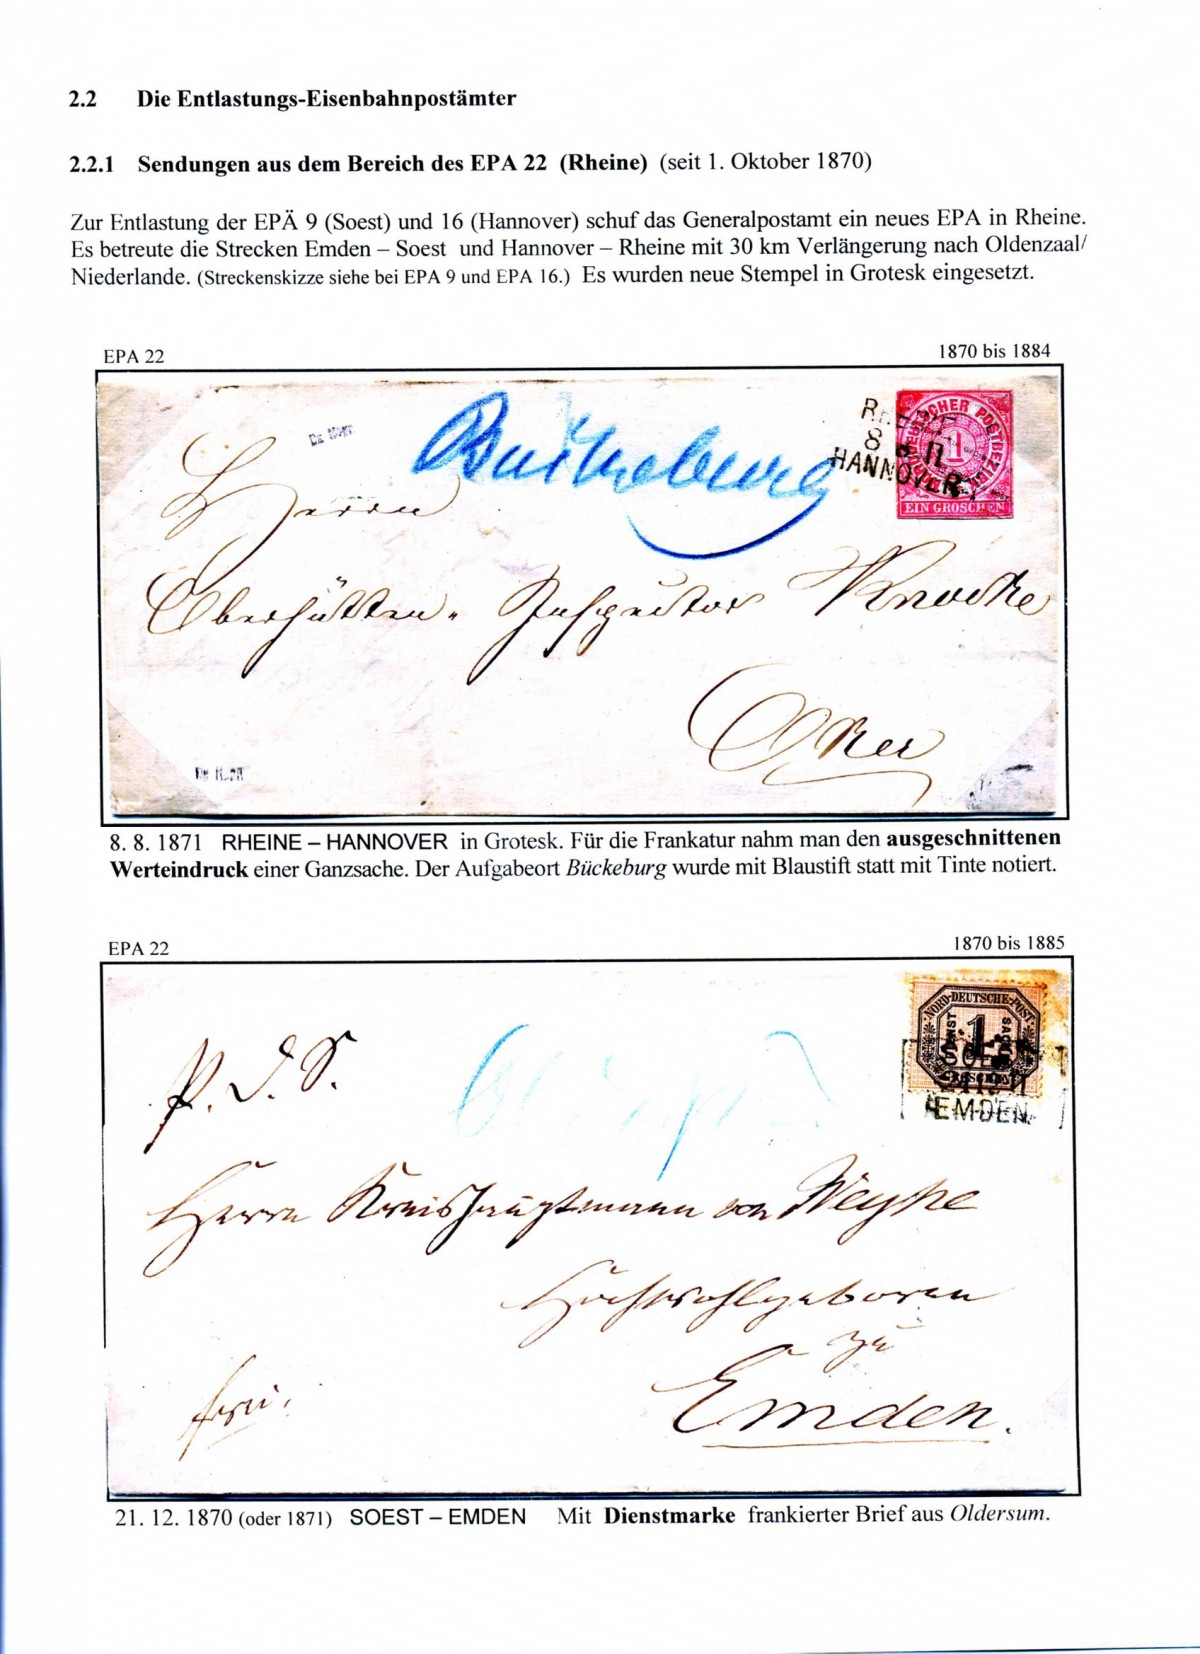 2.2 Die Entlastungs-Eisenbahnpostämter
2.2.1 Sendungen aus dem Bereich des EPA 22 (Rheine) (seit 1. Oktober 1870)
Zur Entlastung der EPÄ 9 (Soest) und 16 (Hannover) schuf das Generalpostamt ein neues EPA in Rheine.
Es betreute die Strecken Emden – Soest und Hannover – Rheine mit 30 km Verlängerung nach Oldenzaal/
Niederlande. (Streckenskizze siehe bei EPA 9 und EPA 16.) Es wurden neue Stempel in Grotesk eingesetzt.
EPA 22 1870 bis 1884
HANNOVER
EIN GROSCHEN
Herrn
Oberhütten-Inspector Knocke
Oker
8. 8. 1871 RHEINE – HANNOVER in Grotesk. Für die Frankatur nahm man den ausgeschnittenen
Werteindruck einer Ganzsache. Der Aufgabeort Bückeburg wurde mit Blaustift statt mit Tinte notiert.
EPA 22 1870 bis 1885
NORD-DEUTSCHE-POST
1
EMDEN
P. J. S.
Herrn Kreishauptmann von Weyhe
Hochwohlgeboren
zu
Emden.
frei.
21. 12. 1870 (oder 1871) SOEST – EMDEN Mit Dienstmarke frankierter Brief aus Oldersum.